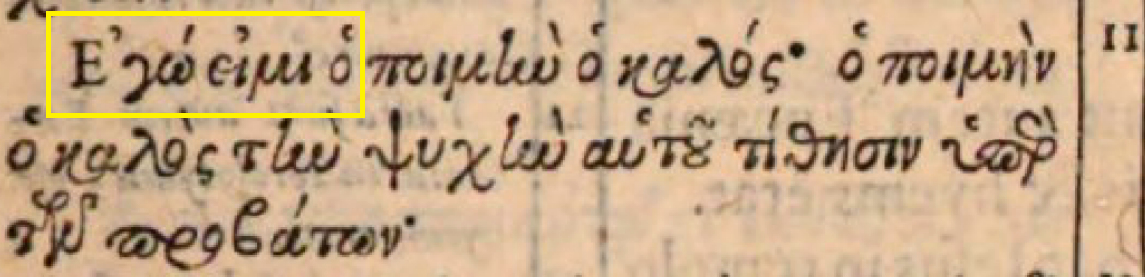 Ἐγώ εἰμι ὁ ποιμὴν ὁ καλός· ὁ ποιμὴν 11
ὁ καλὸς τὴν ψυχὴν αὑτοῦ τίθησιν ὑπὲρ
τῶν προβάτων·